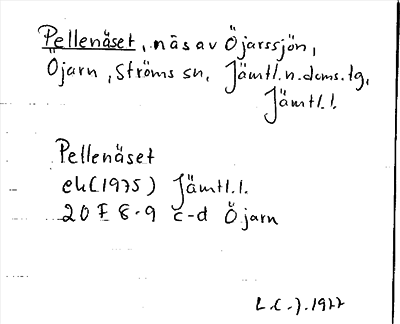 Pellenäset, näs av Öjarssjön,
Öjarn, Ströms sn, Jämtl.n.doms.tg,
Jämtl.l.
Pellenäset
ek(1975) Jämtl.l.
20 E 8-9 c-d Öjarn
L.C.J.1977